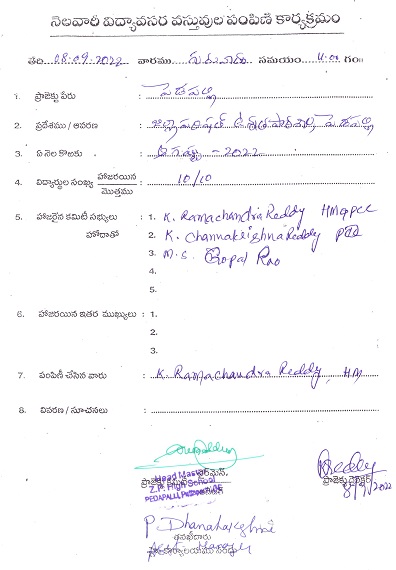 నెలవారీ విద్యావసర వస్తువుల పంపిణీ కార్యక్రమం
తేది 28.09.2022 వారము గురువారం సమయం 4.00 గం॥
1. ప్రాజెక్టు పేరు పెదపల్లి
2. ప్రదేశము / ఆవరణ జిల్లాపరిషత్ ఉన్నతపాఠశాల, పెదపల్లి
3. ఏ నెల కొఱకు ఆగష్టు - 2022
4. విద్యార్థుల సంఖ్య హాజరయిన / మొత్తము 10/10
5. హాజరైన కమిటీ సభ్యులు : 1. K. Ramachandra Reddy HM
హోదాతో 2. K. Channakrishna Reddy
3. M.S. Gopal Rao
4.
5.
6. హాజరయిన ఇతర ముఖ్యులు : 1.
2.
3.
7. పంపిణీ చేసిన వారు : K. Ramachandra Reddy, HM
8. వివరణ / సూచనలు :
Head Master
Z.P. High School
PEDAPALLI
Reddy
ప్రాజెక్టు డైరెక్టర్
8/9/2022
P. Dhanalakshmi
తనిఖీదారు